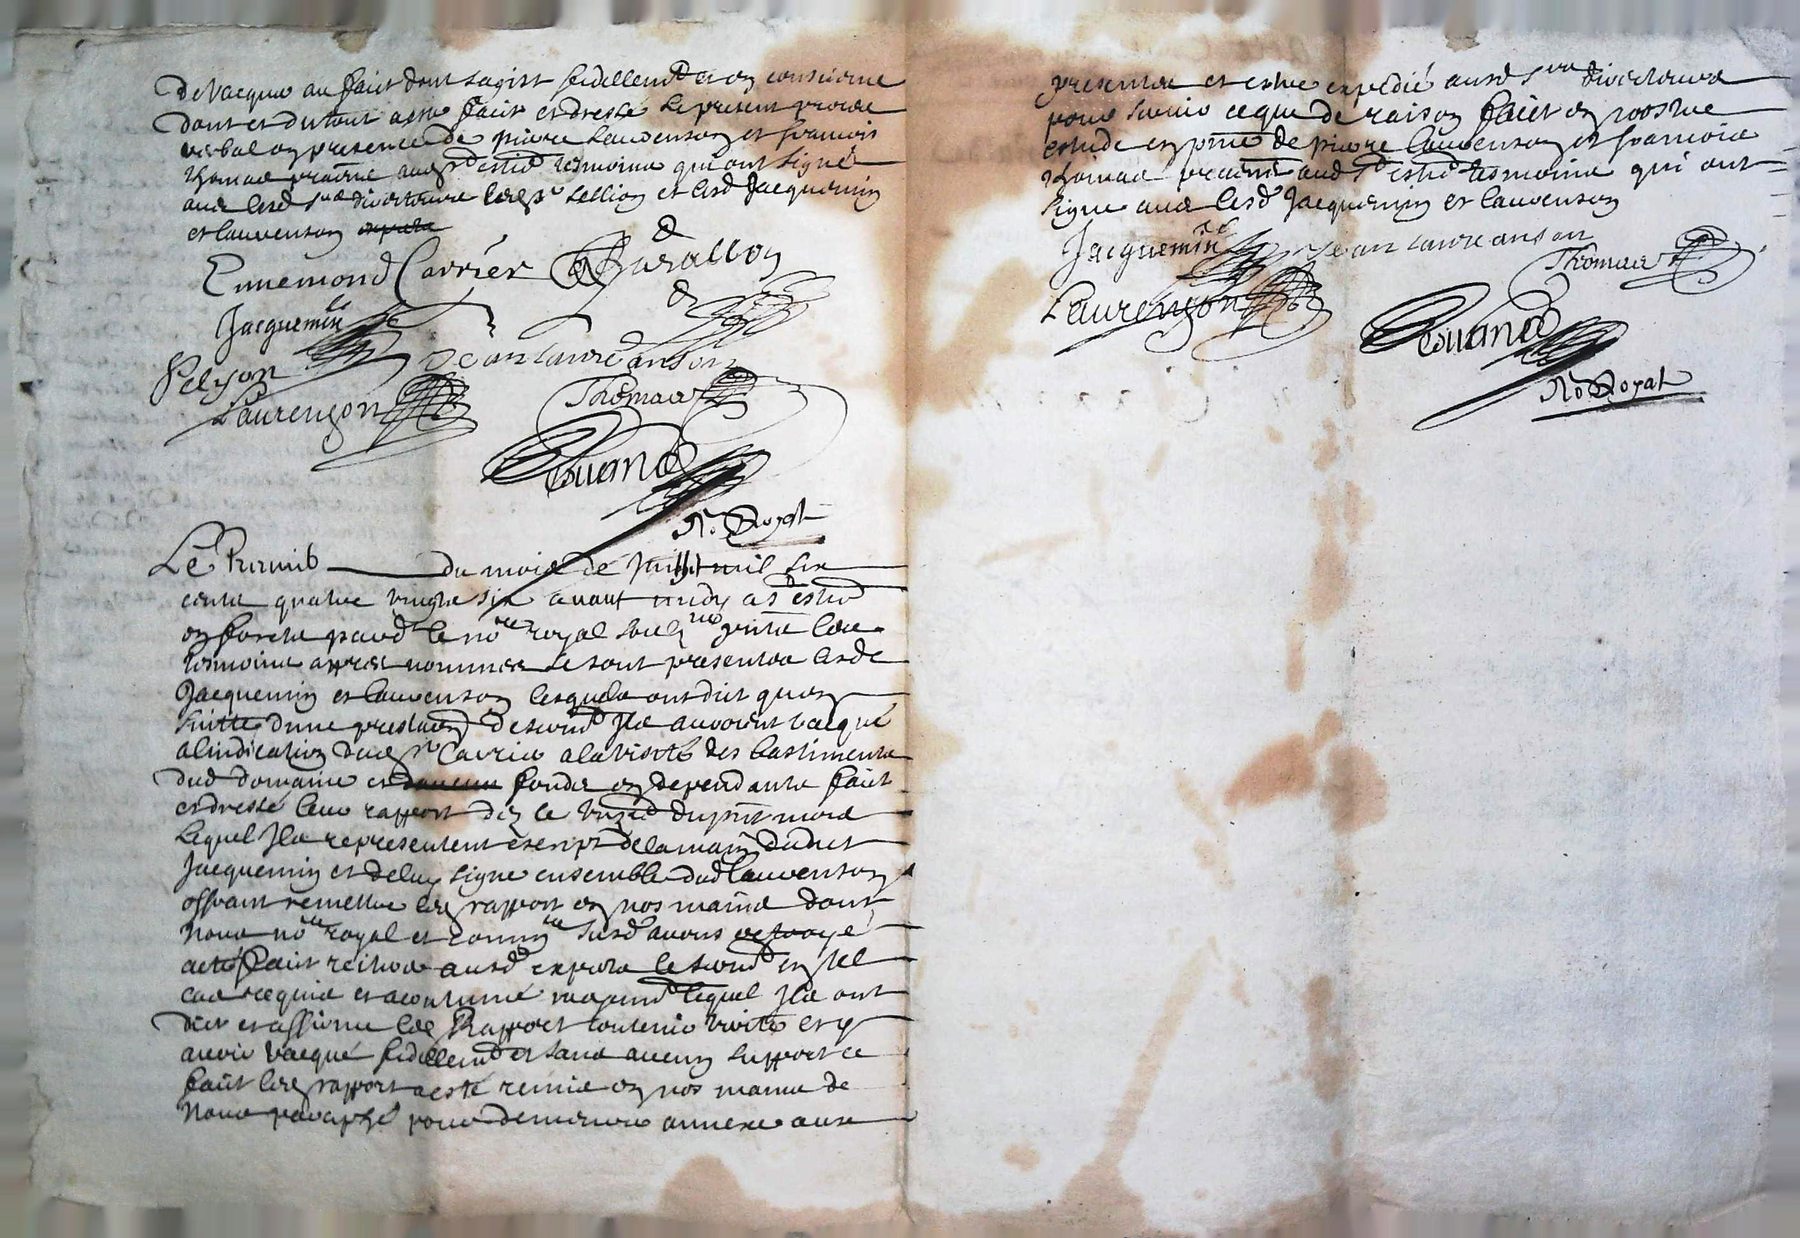 de vacquer au faict dont sagist fidellemt et en consciance
dont et du tout a esté faict et dressé le present proces
verbal en presence de pierre Laurenson et francois
Thomas praticiens aud St estne tesmoins qui ont signé
avec lesd srs directeurs led sr pellion et lesd Jacquemin
et laurenson
Ennemond Carrier
Jacquemin
Pelyon Jean laureanson
Laurençon Thomas
Nre Royal
Le Premier du mois de Juillet mil six
cents quatre vingts six avant midy a St estne
en forests pard le nore royal soubzné present les
tesmoins appres nommes se sont presentes lesds
Jacquemin et laurenson lesquels ont dit quen
suitte dune prestaon de sermt Ils auroient vacqué
a lindication dud sr Carrier a la visitte des bastiments
dud domaine et fonds en dependants faict
et dressé leur rapport dez le du pnt mois
lequel Ils representent escript de la main dudict
Jacquemin et de luy signe ensemble dud laurenson
offrant remettre led rapport en nos mains dont
Nous nore royal et commre susd avons octroyé
acte faict reiterer ausd expers le sermt en tel
cas requis et acoutumé moyent lequel Ils ont
dict et affirmé led Rapport contenir verité et y
avoir vacqué fidellemt et sans aucun support ce
faict led rapport a esté remis en nos mains de
Nous paraphé pour demeurer annexé aux
presentes et estre expedié ausd srs directeurs
pour servir ce que de raison faict en nostre
estude en pnce de pierre laurenson et francois
Thomas praticiens aud St estne tesmoins qui ont
signe avec lesd Jacquemin et laurenson
Jacquemin Jean laureanson
Thomas
Laurençon
Nre Royal